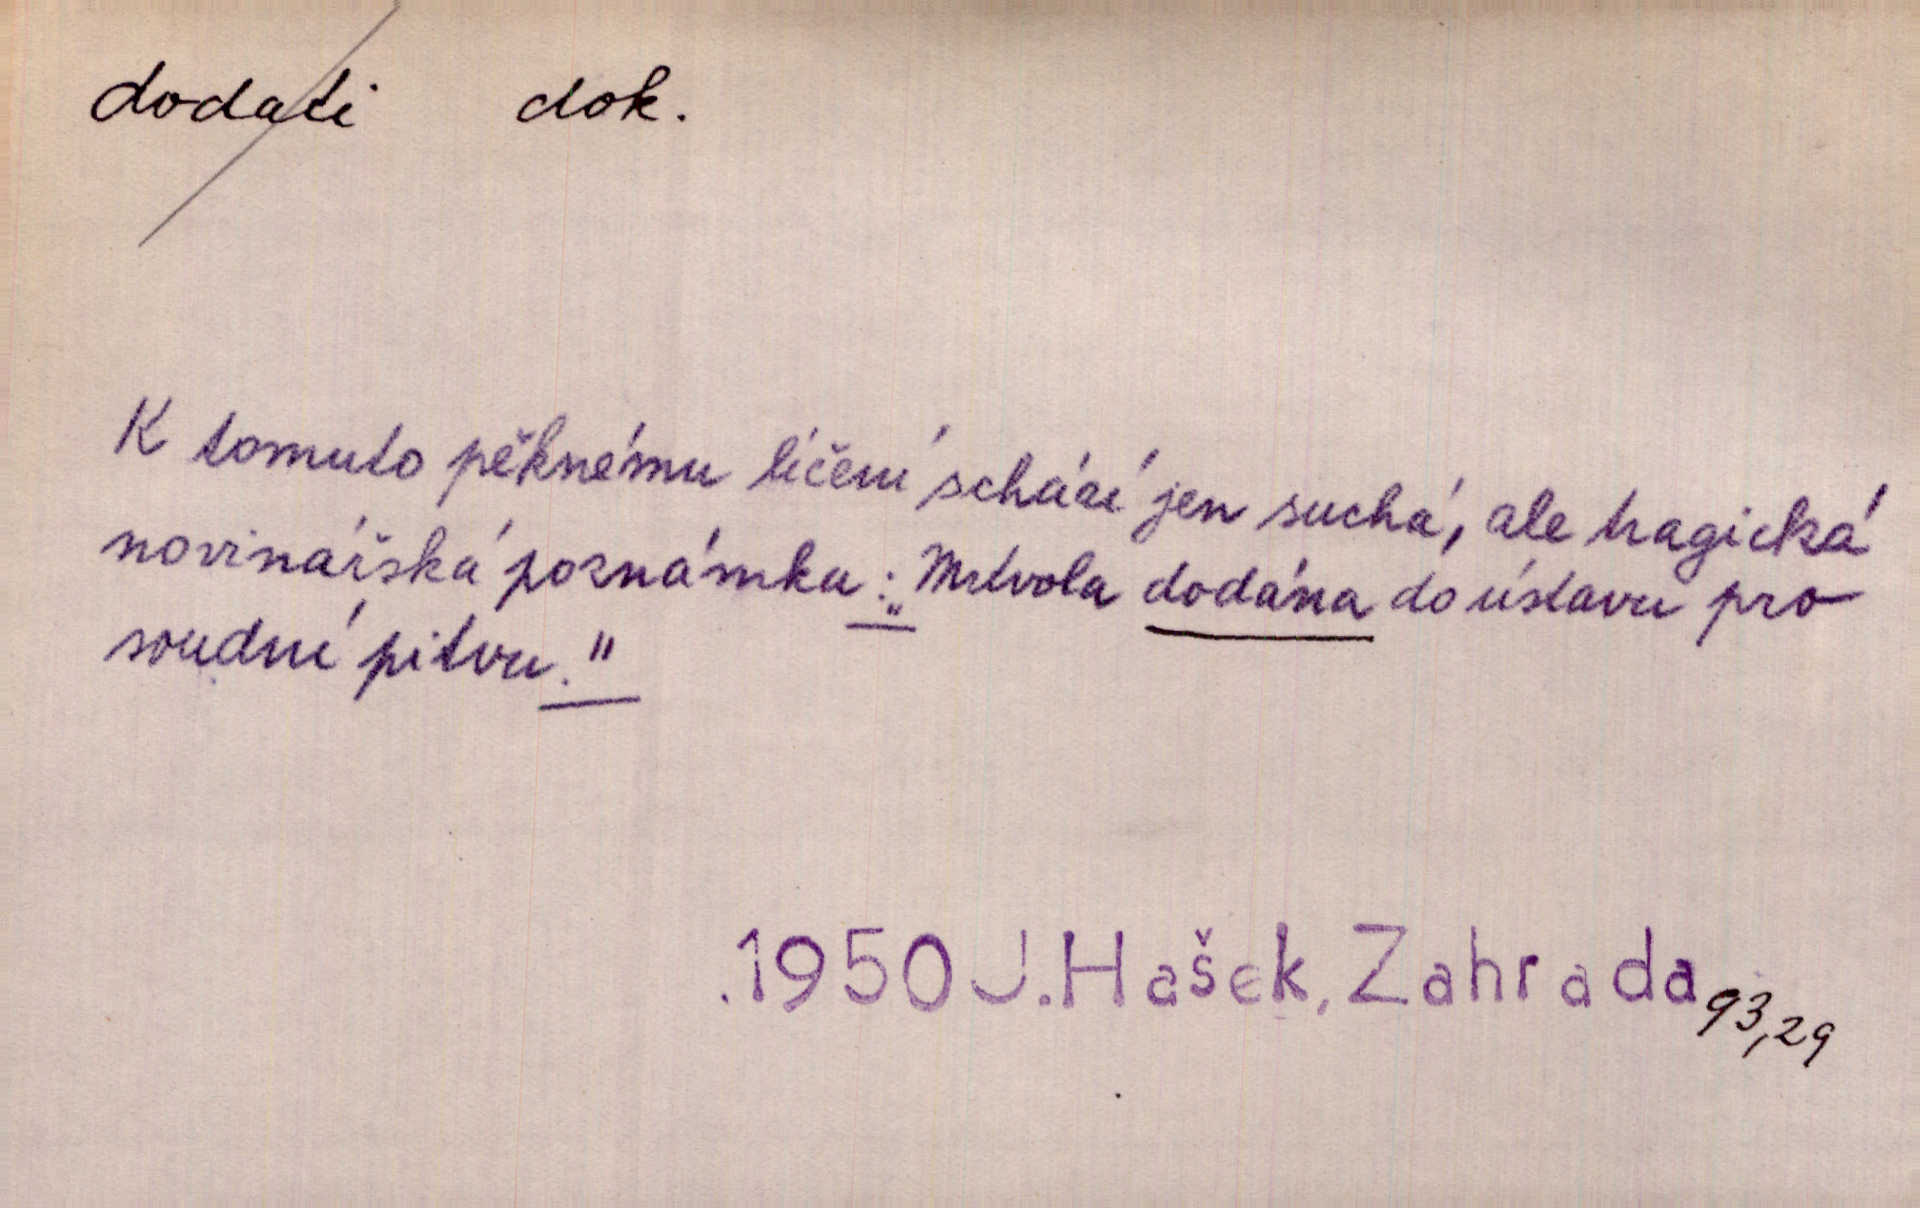 dodati dok.
K tomuto pěknému líčení schází jen suchá, ale tragická
novinářská poznámka: „Mrtvola dodána do ústavu pro
soudní pitvu."
.1950 J. Hašek, Zahrada 93,29